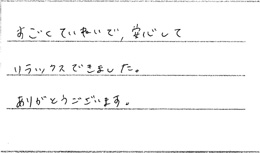 すごくていねいで、安心して
リラックスできました。
ありがとうございます。